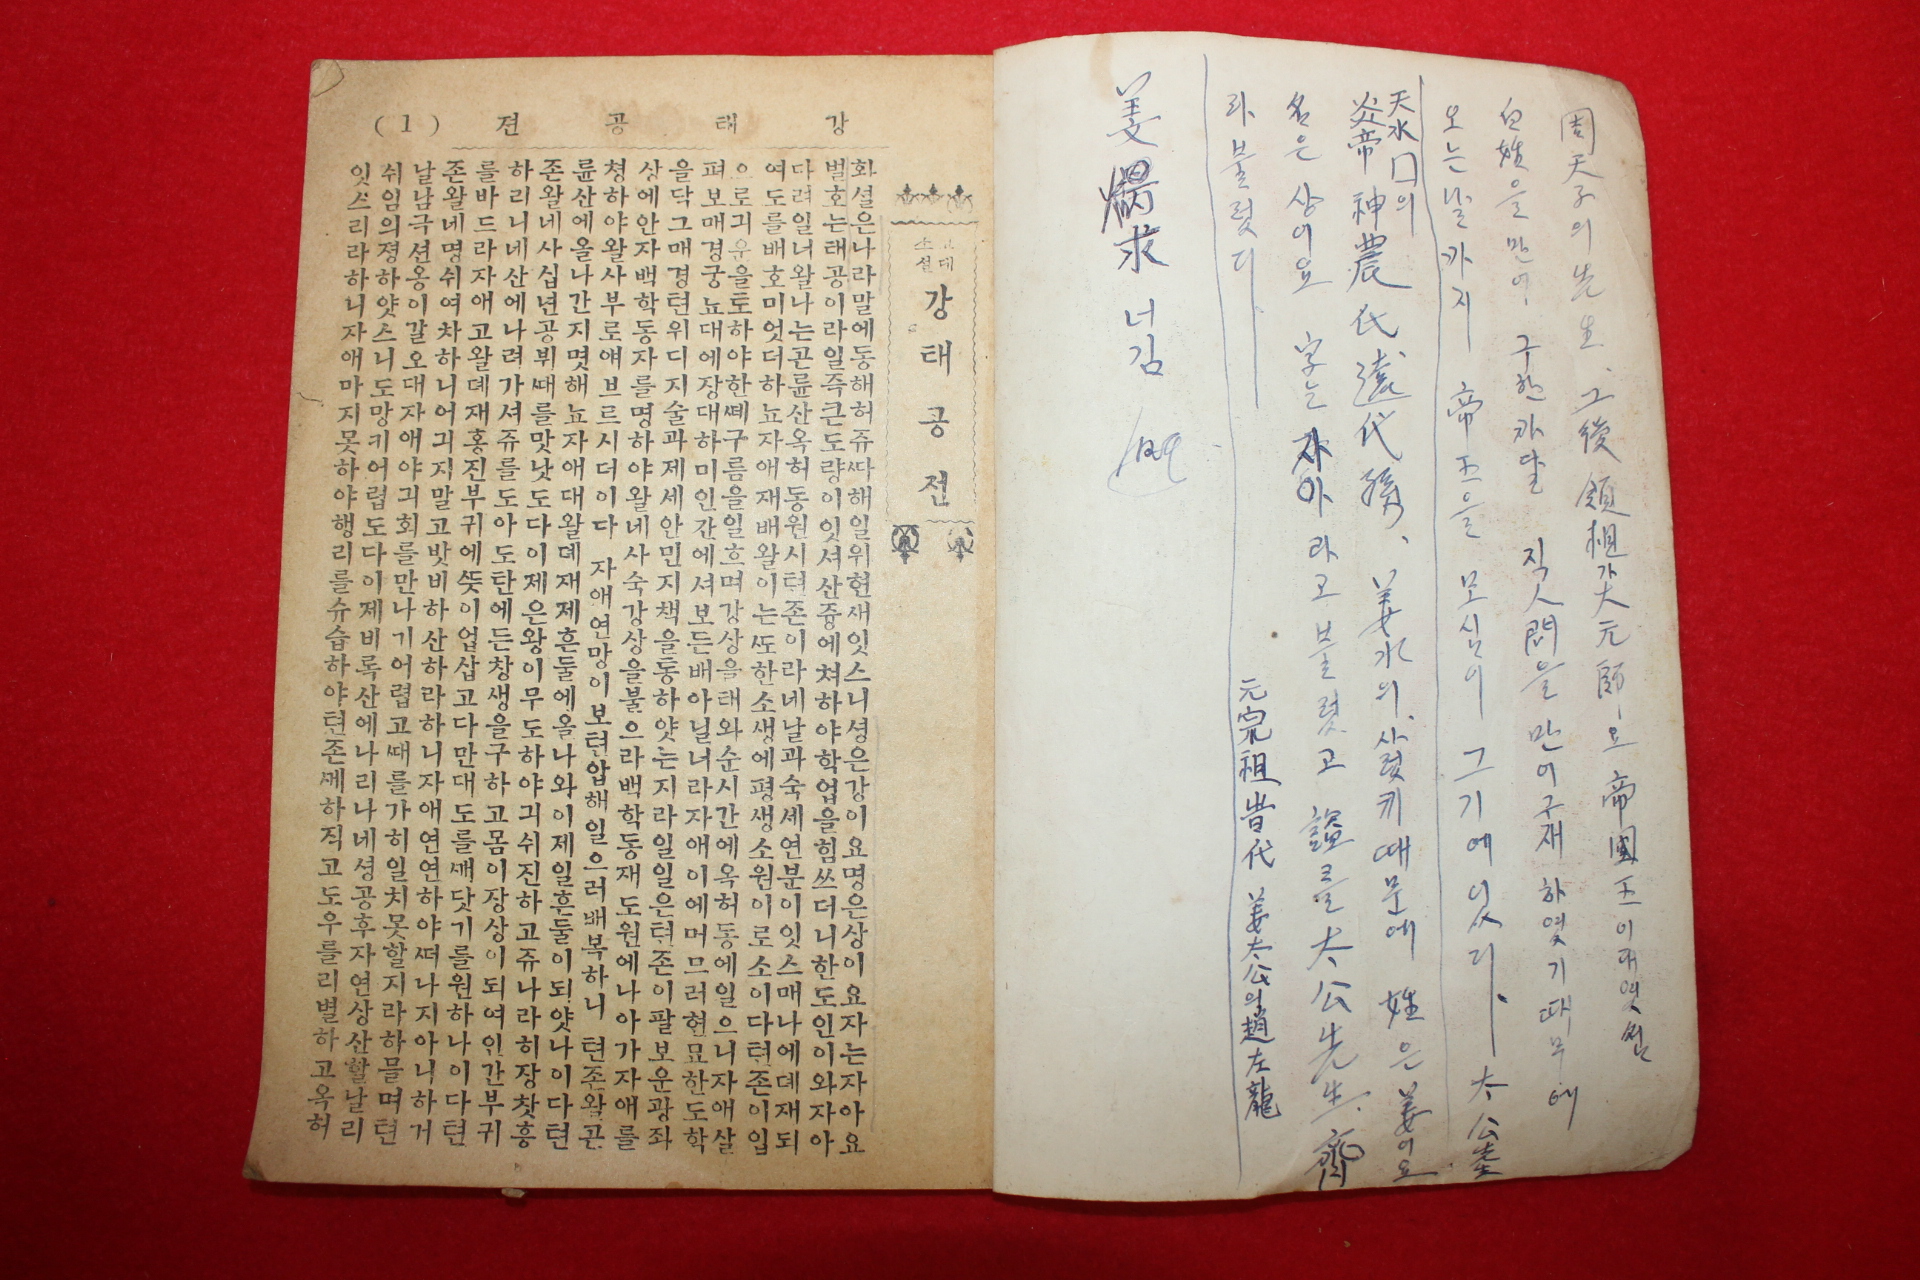 周天子의 先生、그後 領相가 大元師요 帝國王이 대엿섯
白姓을 만어 구한가달 직人問을 만이 구재하엿기 때무에
오는 날까지 帝王을 모심이 그기에 있다. 太公先生
天水口의
炎帝神農氏 遠代孫、姜水의 사럿키 때문에 姓은 姜이요
名은 상이요 字는 자아라고 불렀고 諡를 太公先生
라 불렀디
元宗祖 昔代 姜太公의 趙左龍
姜
求 너김
강태공젼 (1)
고대소설
강태공젼
화셜은나라말에동해허쥬따해일위현새잇스니셩은강이요명은상이요자는자아요
벌호는태공이라일즉큰도량이잇셔산즁에쳐하야학업을힘쓰더니한도인이와자아
다려일너왈나는곤륜산옥허동원시텬존이라네날과숙셰연분이잇스매나에뎨재되
여도를배호미엇더하뇨자애재배왈이는또한소생에평생소원이로소이다텬존이입
으로긔운을토하야한떼구름을일흐며강상을태와순시간에옥허동에일으니자애살
펴보매경궁뇨대에장대하미인간에셔보든배아닐너라자애이에머므러현묘한도학
을닥그매경텬위디지술과졔셰안민지책을통하얏는지라일일은텬존이팔보운광좌
상에안자백학동자를명하야왈네사숙강상을불으라백학동재도원에나아가자애를
쳥하야왈사부로얘브르시더이다 자애연망이보텬압해일으러배복하니 텬존왈곤
륜산에올나간지몃해뇨자애대왈뎨재졔흔둘에올나와이졔일흔둘이되얏나이다텬
존왈네사십년공뷔때를맛낫도다이졔은왕이무도하야긔쉬진하고쥬나라히장찻흥
하리니네산에나려가셔쥬를도아도탄에든창생을구하고몸이장상이되여인간부귀
를바드라자애고왈뎨재홍진부귀에뜻이업삽고다만대도를깨닷기를원하나이다텬
존왈네명쉬여차하니어긔지말고밧비하산하라하니자애연연하야떠나지아니하거
날남극션옹이갈오대자애야긔회를만나기어렵고때를가히일치못할지라하믈며텬
쉬임의졍하얏스니도망키어렵도다이졔비록산에나리나네셩공후자연상산할날리
잇스리라하니자애마지못하야행리를슈습하야텬존께하직고도우를리별하고옥허